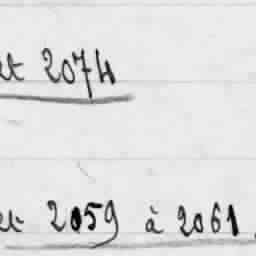 et 2074
et 2059 à 2061.